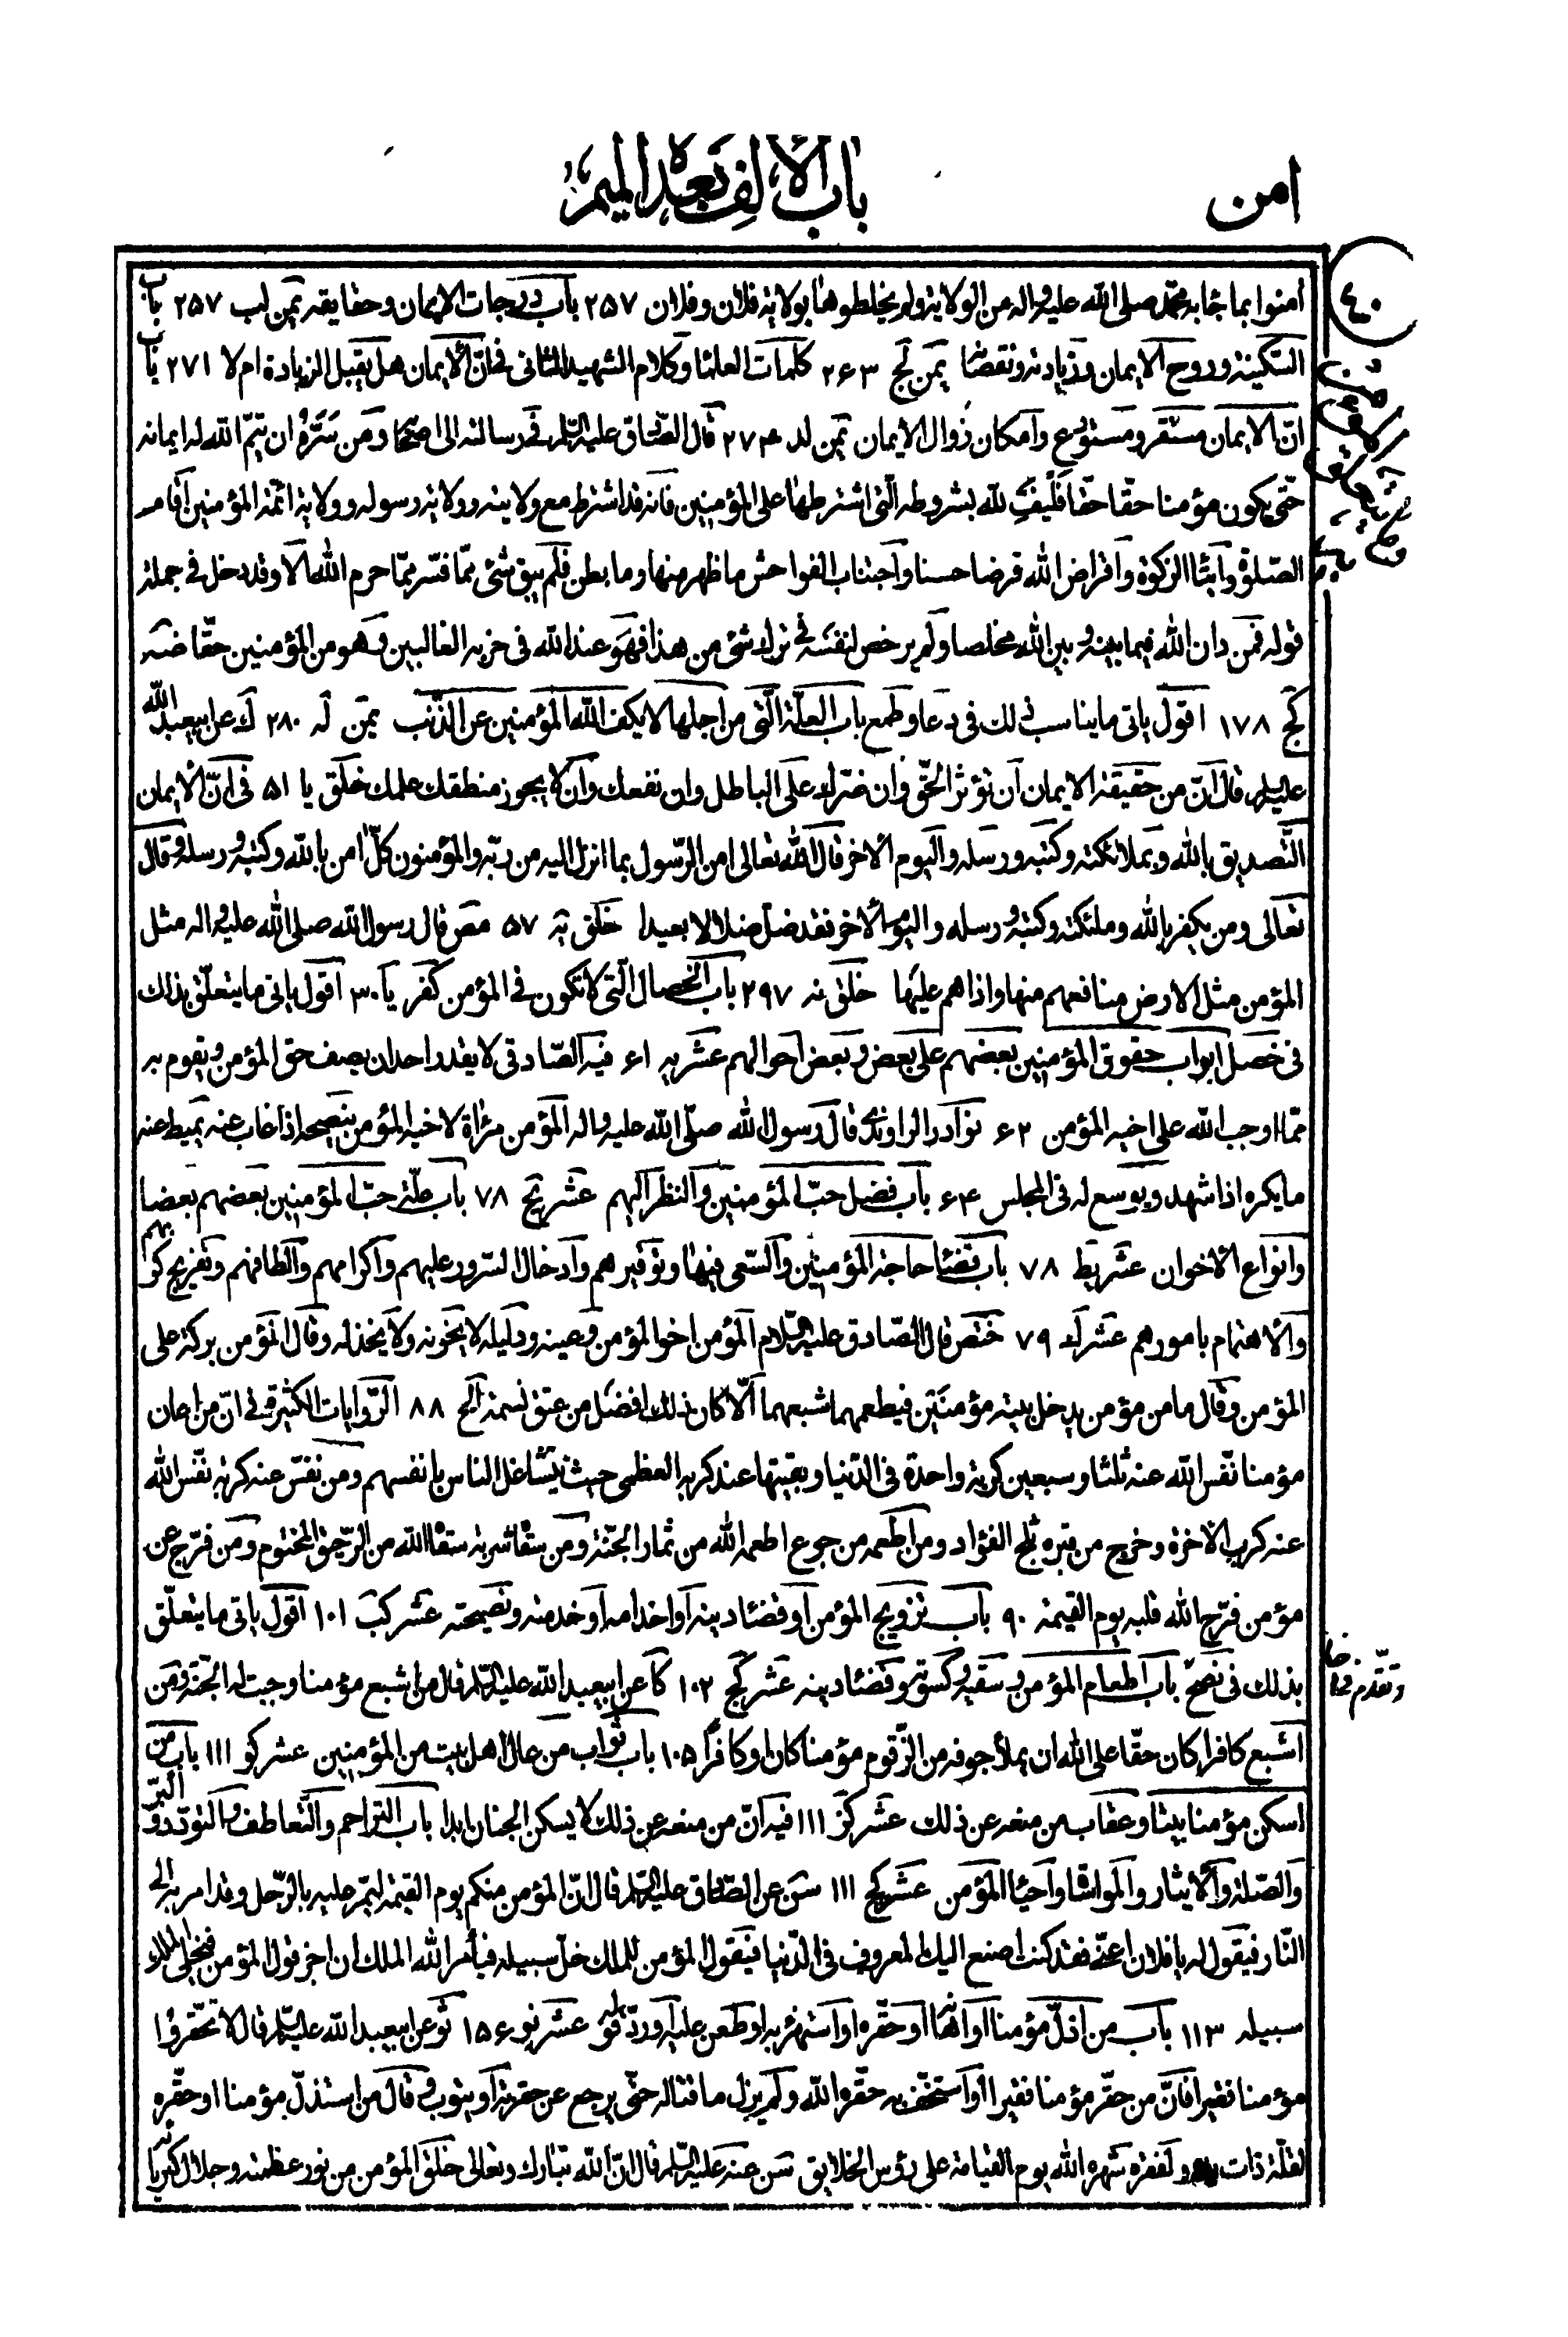 امن
باب الالف بعده الميم
٤٠
امنوا بما جاء به محمّد صلى الله عليه واله من الولاية ولم يخلطوها بولاية فلان وفلان ٢٥٧ باب درجات الايمان وحقايقه يمن لب ٢٥٧ باب
السّكينة وروح الايمان وزيادته ونقصانه يمن لج ٢٦٣ كلمات العلماء وكلام الشهيد الثانى فى انّ الايمان هل يقبل الزيادة ام لا ٢٧١ باب
انّ الايمان مستقر ومستودع وامكان زوال الايمان يمن لد ٢٧٤ قال الصّادق عليه السّلام فى رسالته الى اصحابه ومن سرّه ان يتمّ الله له ايمانه
حتّى يكون مؤمنا حقّا حقّا فليف لله بشروطه الّتى اشترطها على المؤمنين فانه قد اشترط مع ولايته وولاية رسوله وولاية ائمّة المؤمنين اقام
الصّلوة وايتاء الزكوة واقراض الله قرضا حسنا واجتناب الفواحش ما ظهر منها وما بطن فلم يبق شئ ممّا فسّر ممّا حرم الله الا وقد دخل فى جملة
قوله فمن دان الله فيما بينه وبين الله مخلصا ولم يرخص لنفسه فى ترك شئ من هذا فهو عند الله فى حزبه الغالبين وهو من المؤمنين حقّا ضه
كج ١٧٨ اقول ياتى ما يناسب ذلك فى دعا وطمع باب العلّة الّتى من اجلها لا يكف الله المؤمنين عن الذّنب يمن له ٢٨٠ ل عن ابيعبد الله
عليه السلام قال انّ من حقيقة الايمان ان تؤثر الحقّ وان ضرّك على الباطل وان نفعك وان لا يجوز منطقك علمك خلق يا ٥١ فى انّ الايمان
التّصديق بالله وبملائكته وكتبه ورسله واليوم الاخر قال الله تعالى امن الرّسول بما انزل اليه من ربّه والمؤمنون كلّ امن بالله وكتبه ورسله وقال
تعالى ومن يكفر بالله وملئكته وكتبه ورسله واليوم الاخر فقد ضلّ ضلالا بعيدا خلق يه ٥٧ مص قال رسول الله صلى الله عليه واله مثل
المؤمن مثل الارض منافعهم منها واذاهم عليها خلق نه ٢٩٧ باب الخصال الّتى لا تكون فى المؤمن كفر يا ٣٠ اقول ياتى ما يتعلّق بذلك
فى خصل ابواب حقوق المؤمنين بعضهم على بعض وبعض احوالهم عشر يه ٦١ فيه الصّادقى لا يقدر احد ان يصف حق المؤمن ويقوم به
ممّا اوجب الله على اخيه المؤمن ٦٢ نوادر الراوندى قال رسول الله صلّى الله عليه واله المؤمن مرآة لاخيه المؤمن ينصحه اذا غاب عنه يميط عنه
ما يكره اذا شهد ويوسع له فى المجلس ٦٤ باب فضل حبّ المؤمنين والنظر اليهم عشر يح ٧٨ باب علّة حبّ المؤمنين بعضهم بعضا
وانواع الاخوان عشر يط ٧٨ باب قضاء حاجة المؤمنين والسّعى فيها وتوقيرهم وادخال السّرور عليهم واكرامهم والطافهم وتفريج كربهم
والاهتمام بامورهم عشر ك ٧٩ ختص قال الصّادق عليه السّلام المؤمن اخو المؤمن وعينه ودليله لا يخونه ولا يخذله وقال المؤمن بركة على
المؤمن وقال ما من مؤمن يدخل بيته مؤمنين فيطعمهما شبعهما الّا كان ذلك افضل من عتق نسمة الخ ٨٨ الرّوايات الكثيرة فى انّ من اعان
مؤمنا نفّس الله عنه ثلثا وسبعين كربة واحدة فى الدّنيا وبقيتها عند كربه العظمى حيث يتشاغل الناس بانفسهم ومن نفّس عنه كربة نفّس الله
عنه كرب الاخرة وخرج من قبره ثلج الفؤاد ومن اطعمه من جوع اطعمه الله من ثمار الجنّة ومن سقاه شربة سقاه الله من الرّحيق المختوم ومن فرّج عن
مؤمن فرّج الله قلبه يوم القيمة ٩٠ باب تزويج المؤمن او قضاء دينه او اخدامه او خدمته ونصيحته عشر كب ١٠١ اقول ياتى ما يتعلّق
بذلك فى نصح باب اطعام المؤمن وسقيه وكسوته وقضاء دينه عشر كج ١٠٢ كا عن ابيعبد الله عليه السّلام قال من اشبع مؤمنا وجبت له الجنّة ومن
اشبع كافرا كان حقّا على الله ان يملأ جوفه من الزّقوم مؤمنا كان او كافرا ١٠٥ باب ثواب من عال اهل بيت من المؤمنين عشر كو ١١١ باب من
اسكن مؤمنا بيتا وعقاب من منعه عن ذلك عشر كز ١١١ فيه انّ من منعه عن ذلك لا يسكن الجنان ابدا باب التراحم والتّعاطف والتودّد والبرّ
والصّلة والايثار والمواساة واحياء المؤمن عشر كح ١١١ سن عن الصّادق عليه السّلام قال انّ المؤمن منكم يوم القيمة ليمرّ عليه بالرّجل وقد امر به الى
النّار فيقول له يا فلان اعنّى فقد كنت اصنع اليك المعروف فى الدّنيا فيقول المؤمن للملك خلّ سبيله فيأمر الله الملك ان اجز قول المؤمن فيخلّى الملك
سبيله ١١٣ باب من اذلّ مؤمنا او اهانه او حقّره او استهزء به او طعن عليه او ردّ قوله عشر نو ١٥٦ ثو عن ابيعبد الله عليه السّلام قال لا تحقّروا
مؤمنا فقيرا فانّ من حقّر مؤمنا فقيرا او استخفّ به حقّره الله ولم يزل ماقتا له حتّى يرجع عن حقرته او يتوب وقال من استذلّ مؤمنا او حقّره
لقلّة ذات يده ولفقره شهره الله يوم القيامة على رؤس الخلايق سن عنه عليه السّلام قال انّ الله تبارك وتعالى خلق المؤمن من نور عظمته وجلال كبريائه
وتقدّم فى